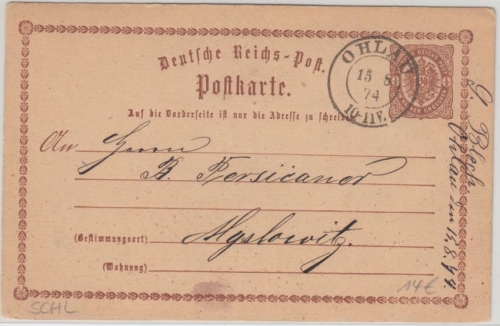 Deutsche Reichs-Post.
Postkarte.
OHLAU
15 8
74
10-11V.
Auf die Vorderseite ist nur die Adresse zu schreiben
An Herrn
B. Persicaner
Myslowitz.
(Bestimmungsort)
(Wohnung)
G. Blech
Ohlau
SCHL
14€